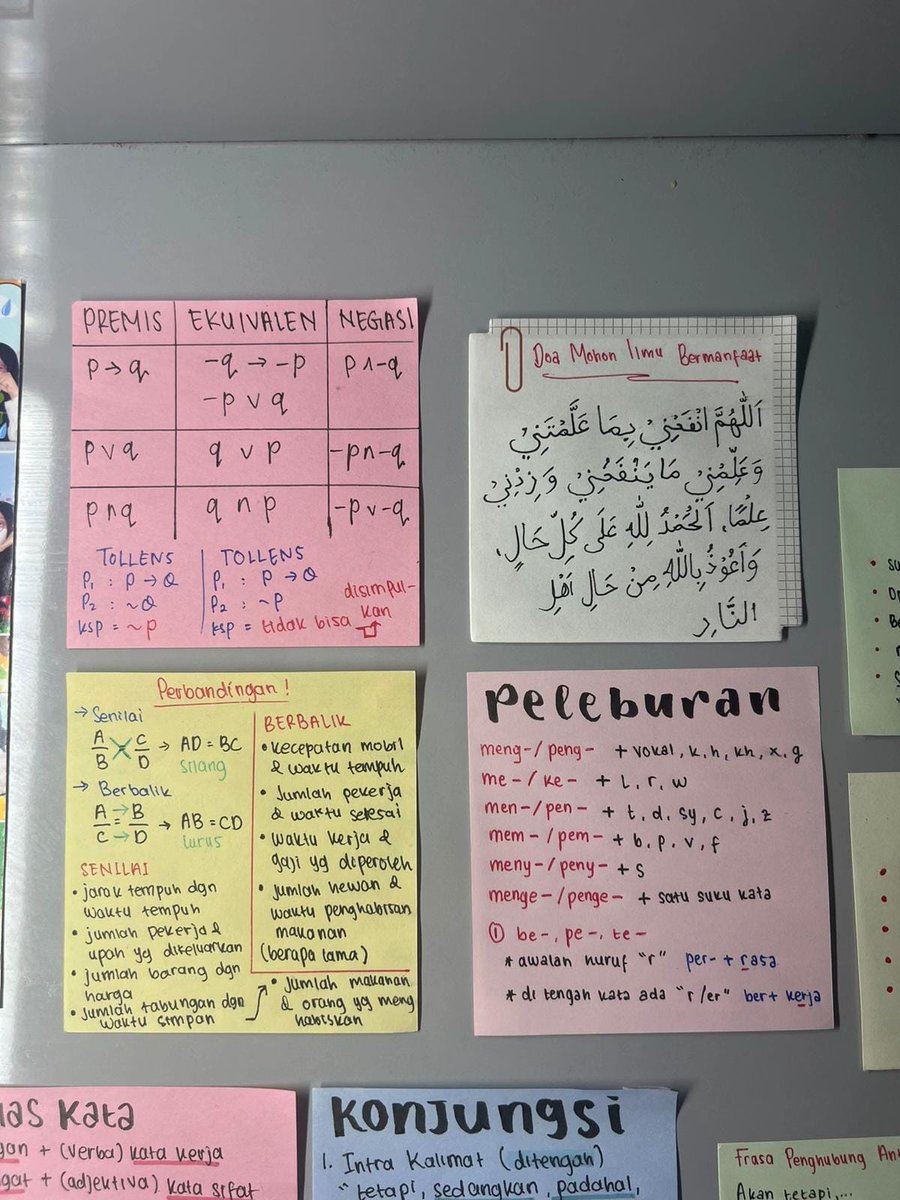 PREMIS EKUIVALEN NEGASI
p → q -q → -p p ∧ -q
-p ∨ q
p ∨ q q ∨ p -p ∩ -q
p ∩ q q ∩ p -p ∨ -q
TOLLENS
P₁ : P → Q
P₂ : ~Q
KSP = ~P
TOLLENS
P₁ : P → Q
P₂ : ~P
KSP = tidak bisa disimpul-
kan
Doa Mohon Ilmu Bermanfaat
اَللّٰهُمَّ انْفَعْنِيْ بِمَا عَلَّمْتَنِيْ
وَعَلِّمْنِيْ مَا يَنْفَعُنِيْ وَزِدْنِيْ
عِلْمًا، اَلْحَمْدُ لِلّٰهِ عَلَى كُلِّ حَالٍ،
وَأَعُوْذُ بِاللّٰهِ مِنْ حَالِ أَهْلِ
النَّارِ
Perbandingan !
→ Senilai
A/B × C/D → AD = BC
silang
→ Berbalik
A/C = B/D → AB = CD
lurus
SENILAI
• jarak tempuh dgn
waktu tempuh
• jumlah pekerja &
upah yg dikeluarkan
• jumlah barang dgn
harga
• Jumlah tabungan dgn
waktu simpan
BERBALIK
• kecepatan mobil
& waktu tempuh
• Jumlah pekerja
& waktu selesai
• waktu kerja &
gaji yg diperoleh
• jumlah hewan &
waktu penghabisan
makanan
(berapa lama)
• jumlah makanan
& orang yg meng
habiskan
Peleburan
meng-/peng- + vokal, k, h, kh, x, g
me-/ke- + l, r, w
men-/pen- + t, d, sy, c, j, z
mem-/pem- + b, p, v, f
meny-/peny- + s
menge-/penge- + satu suku kata
① be-, pe-, te-
* awalan huruf "r" per- + rasa
* di tengah kata ada "r/er" ber + kerja
Kata
+ (verba) kata kerja
+ (adjektiva) kata sifat
Konjungsi
1. Intra Kalimat (ditengah)
" tetapi, sedangkan, padahal,
Frasa Penghubung
Akan tetapi,...